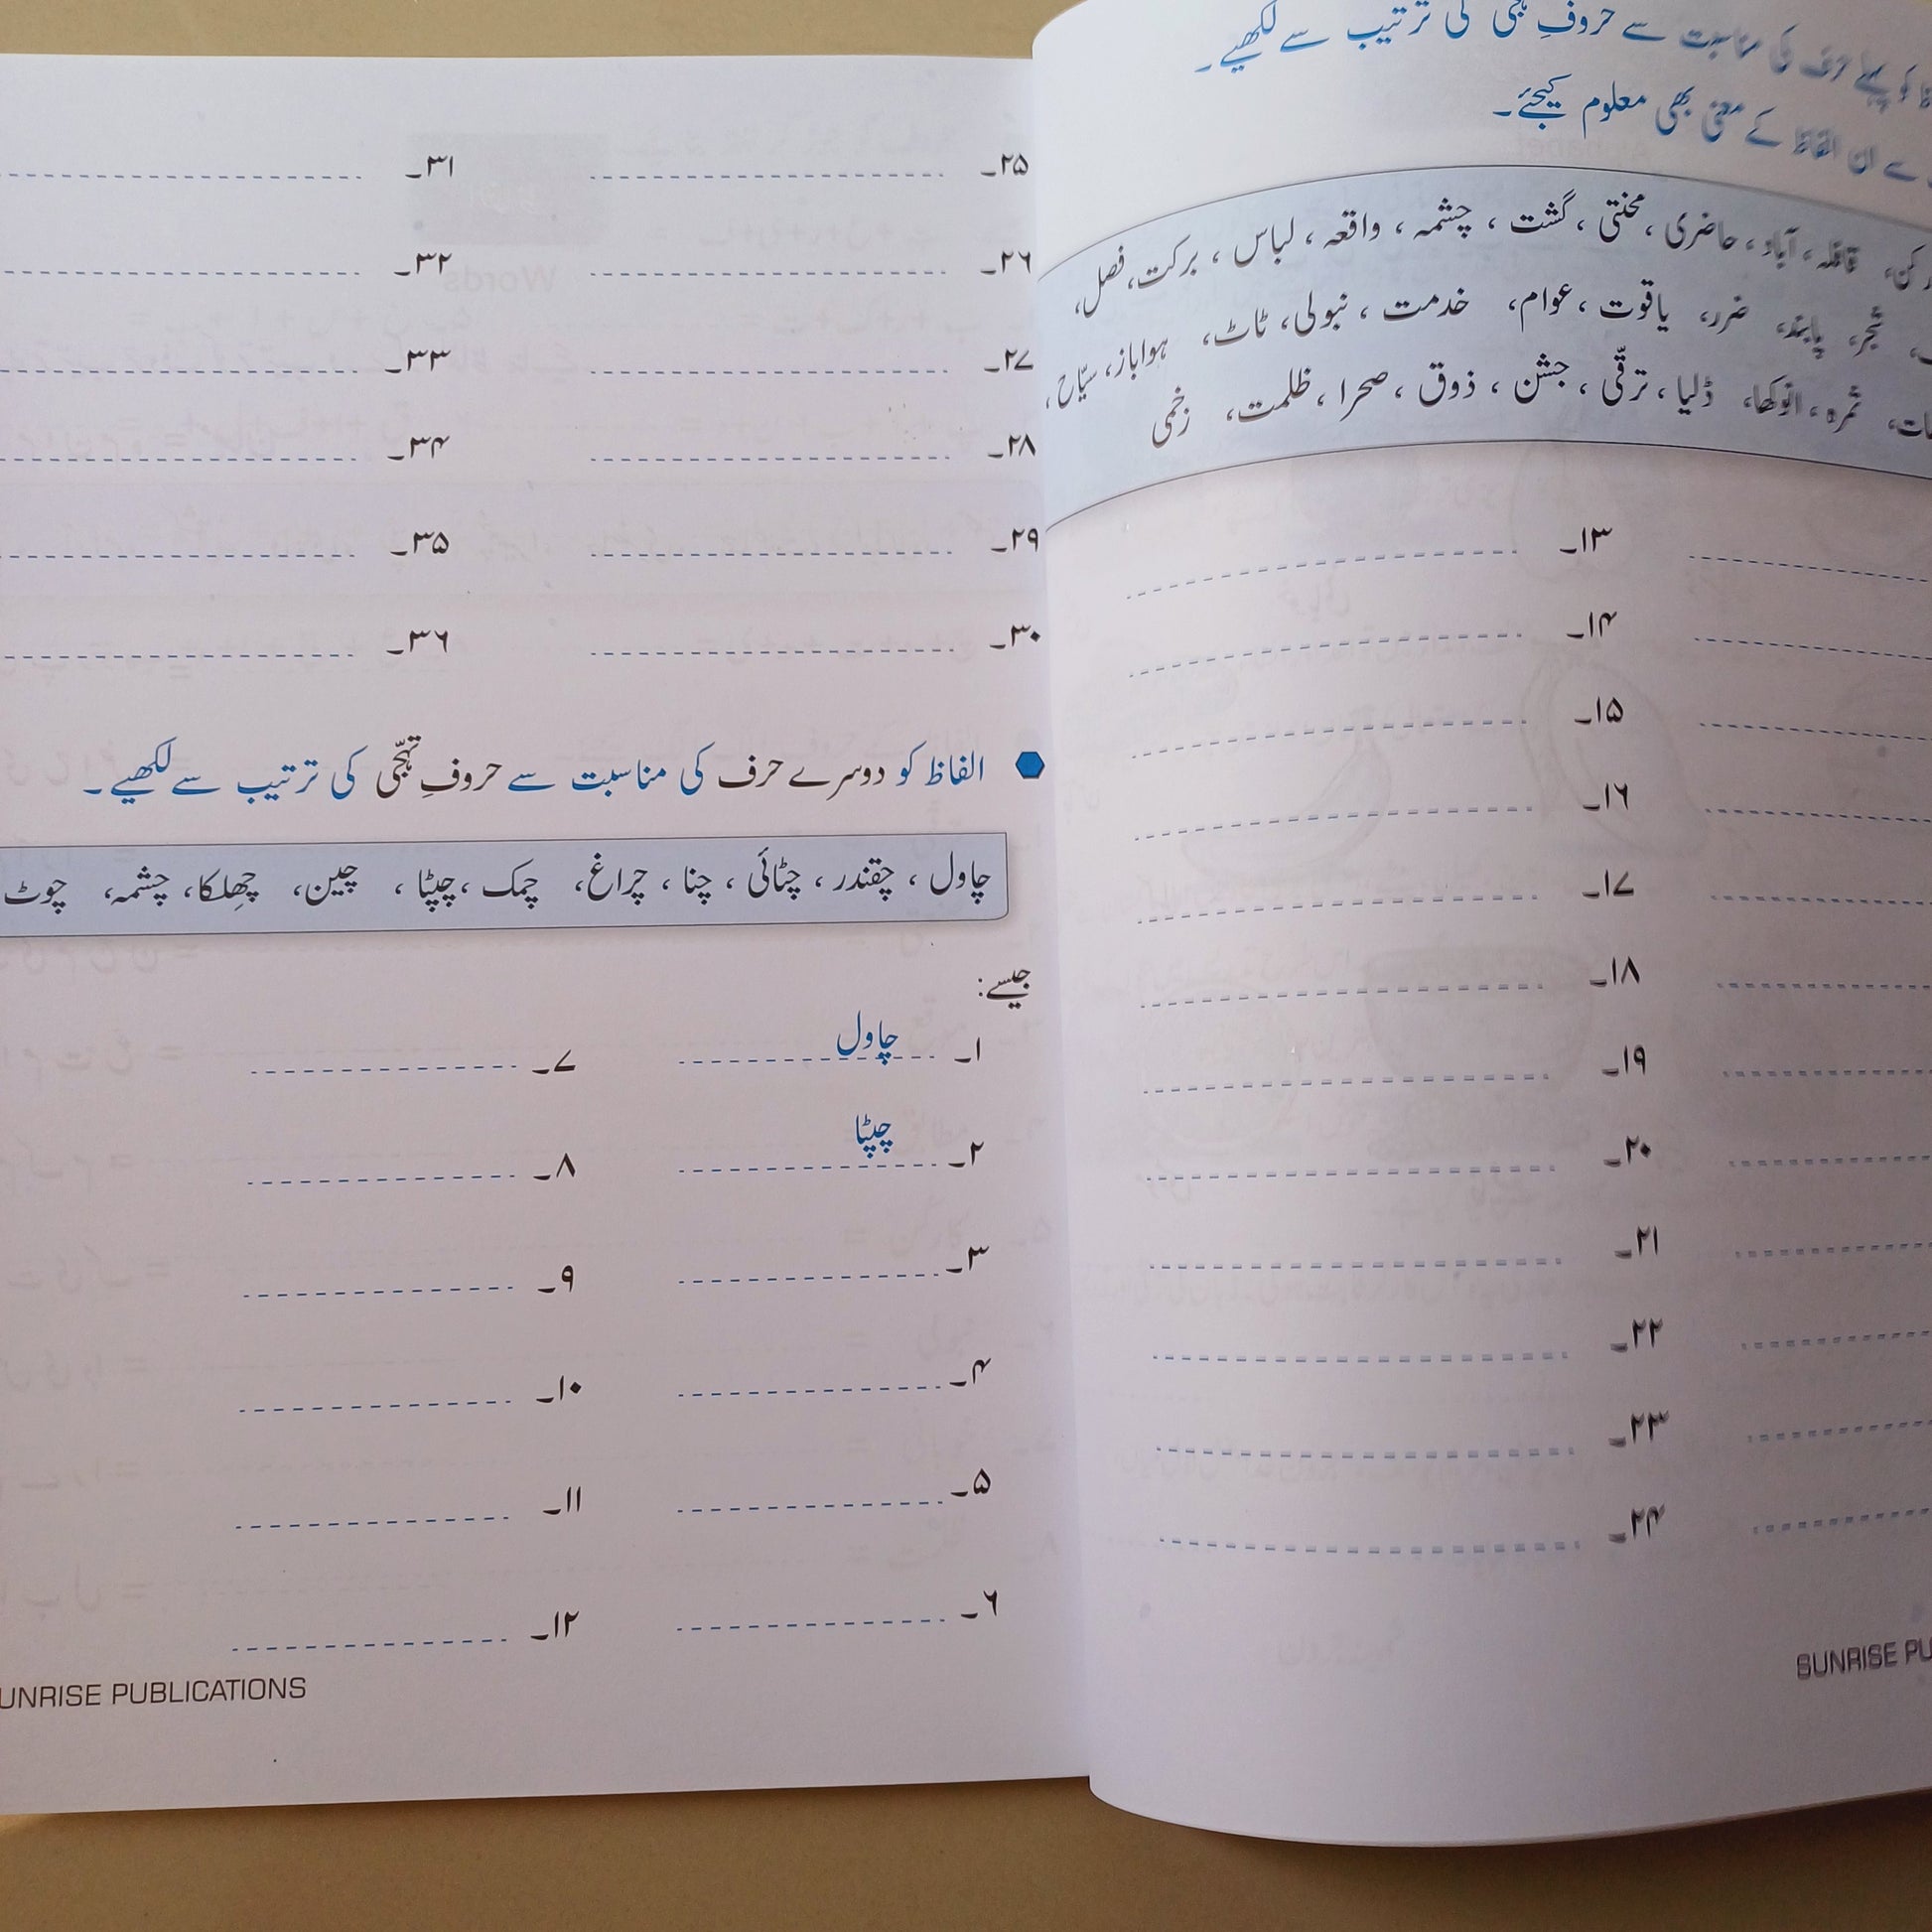 سے حروفِ تہجی کی ترتیب سے لکھیے۔
کے معنی بھی معلوم کیجئے۔
قافلہ، آباد، حاضری، محنتی، گشت، چشمہ، واقعہ، لباس، برکت، فصل،
شجر، پابند، ضرر، یاقوت، عوام، خدمت، نبولی، ٹاٹ، ہواباز، سیّاح،
ثمرہ، انوکھا، ڈلیا، ترقّی، جشن، ذوق، صحرا، ظلمت، زخمی
۱۳۔
۱۴۔
۱۵۔
۱۶۔
۱۷۔
۱۸۔
۱۹۔
۲۰۔
۲۱۔
۲۲۔
۲۳۔
۲۴۔
SUNRISE
۲۵۔ ۳۱۔
۲۶۔ ۳۲۔
۲۷۔ ۳۳۔
۲۸۔ ۳۴۔
۲۹۔ ۳۵۔
۳۰۔ ۳۶۔
الفاظ کو دوسرے حرف کی مناسبت سے حروفِ تہجّی کی ترتیب سے لکھیے۔
چاول، چقندر، چٹائی، چنا، چراغ، چمک، چپٹا، چین، چھِلکا، چشمہ، چوٹ
جیسے:
۱۔ چاول ۷۔
۲۔ چپٹا ۸۔
۳۔ ۹۔
۴۔ ۱۰۔
۵۔ ۱۱۔
۶۔ ۱۲۔
UNRISE PUBLICATIONS